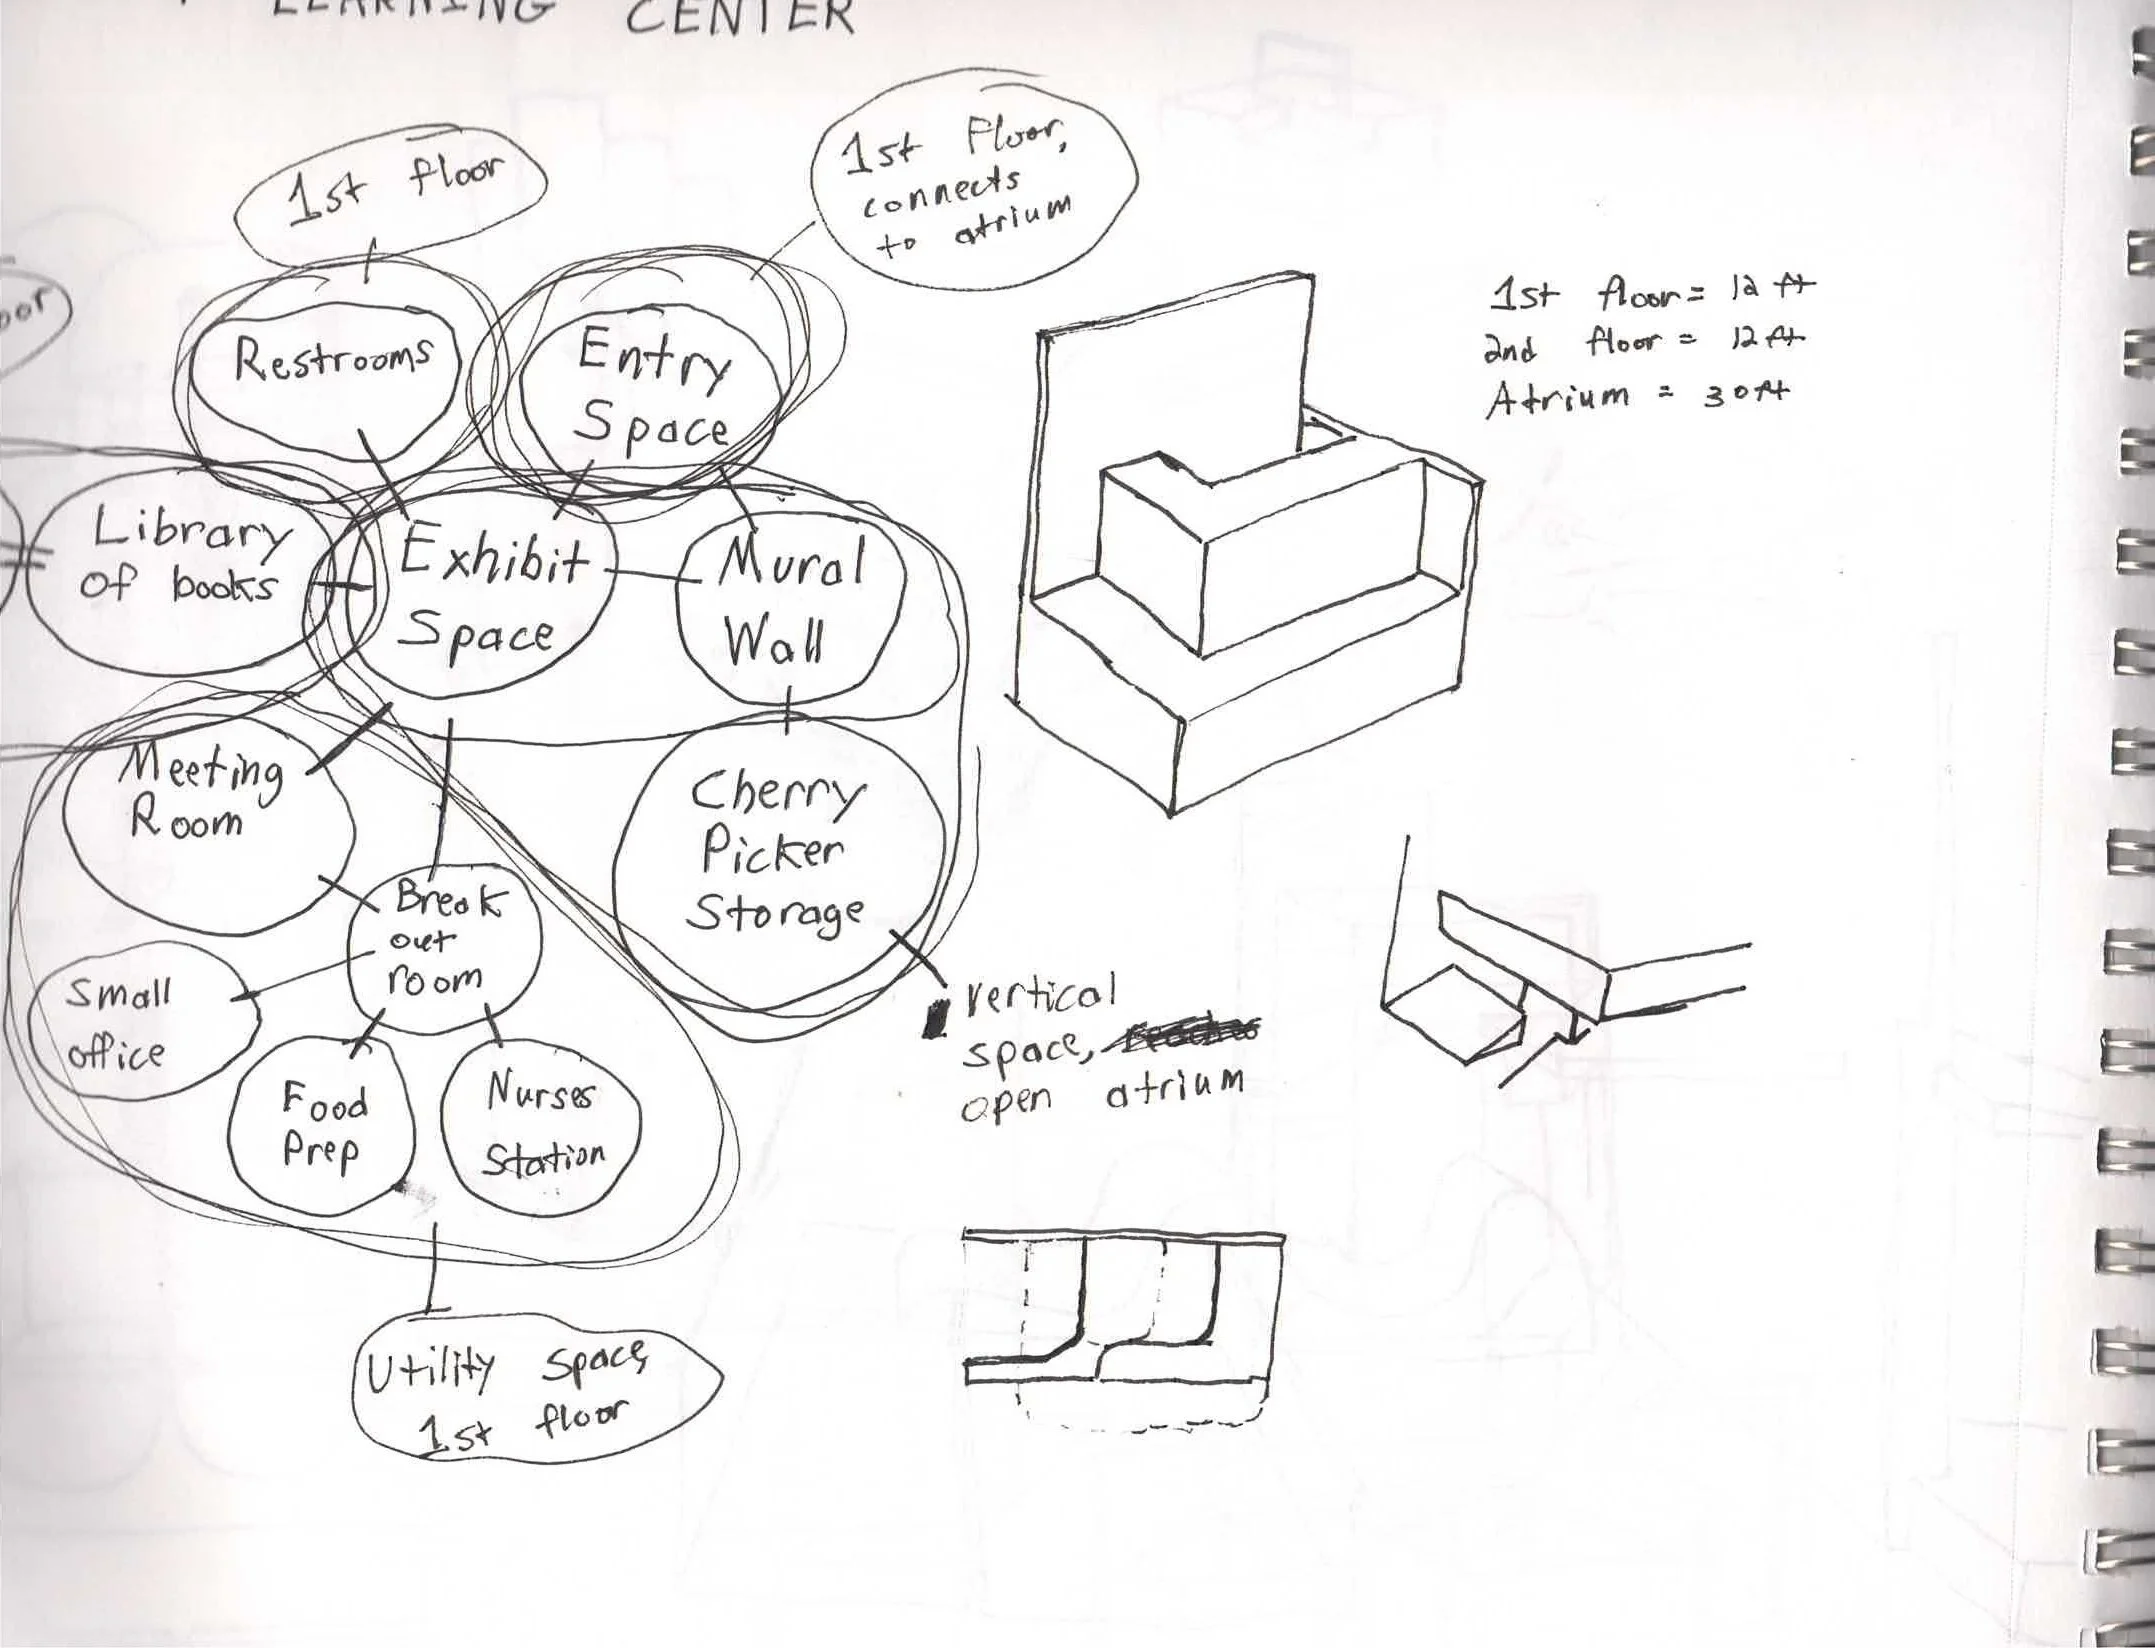 LEARNING CENTER
1st floor
1st Floor,
connects
to atrium
oor
Restrooms
Entry
Space
1st floor = 12 ft
2nd floor = 12 ft
Atrium = 30 ft
Library
of books
Exhibit
Space
Mural
Wall
Meeting
Room
Cherry
Picker
Storage
Break
out
room
Small
office
vertical
space,
open atrium
Food
Prep
Nurses
Station
Utility space,
1st floor